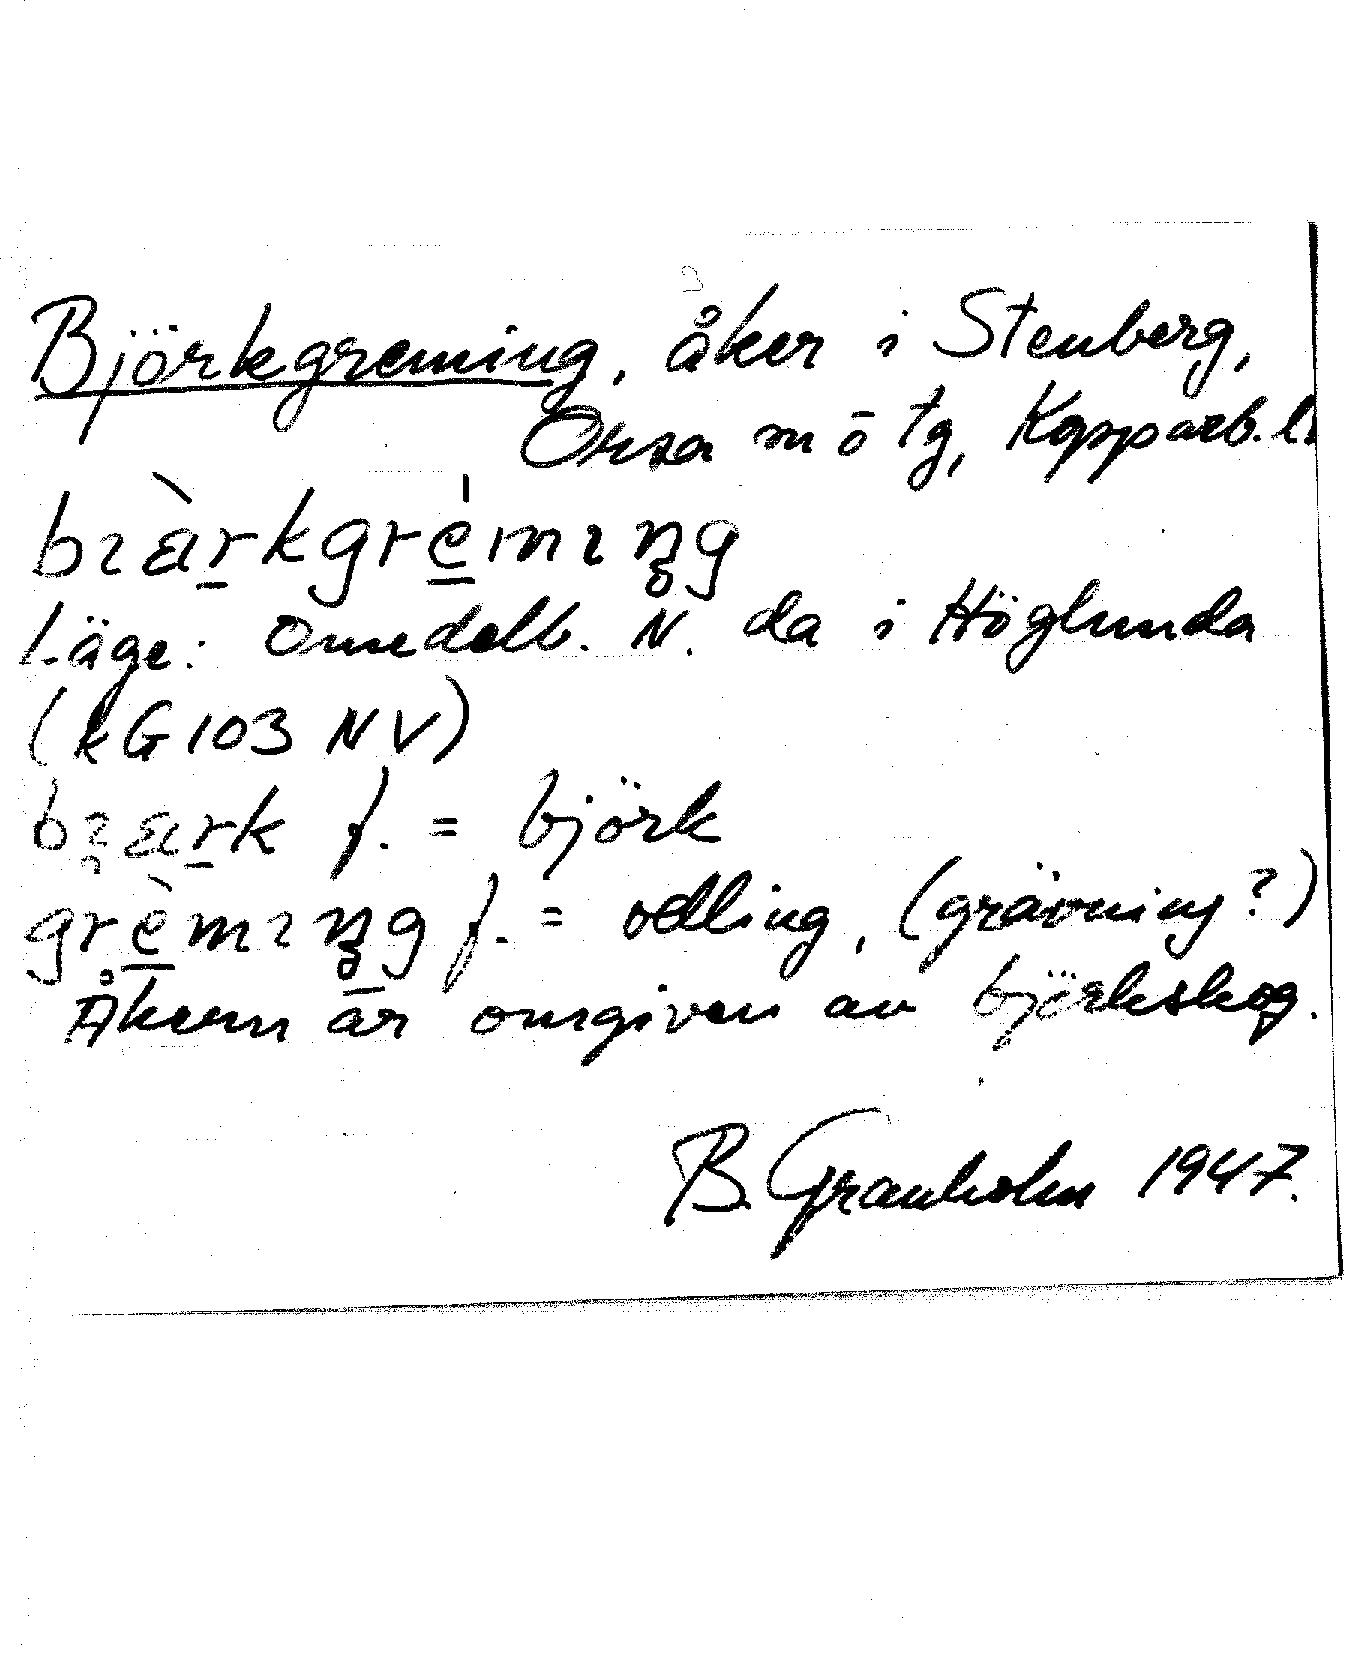 Björkgreming, åker i Stenberg,
Orsa m ō tg, Kopparb. l.
bıàrkgrèmıŋg
Läge: Omedelb. N. da i Höglunda
(kG103 NV)
bıark f. = björk
grèmıŋg f. = odling, (grävning?)
Åkern är omgiven av björkskog.
B. Granholm 1947.